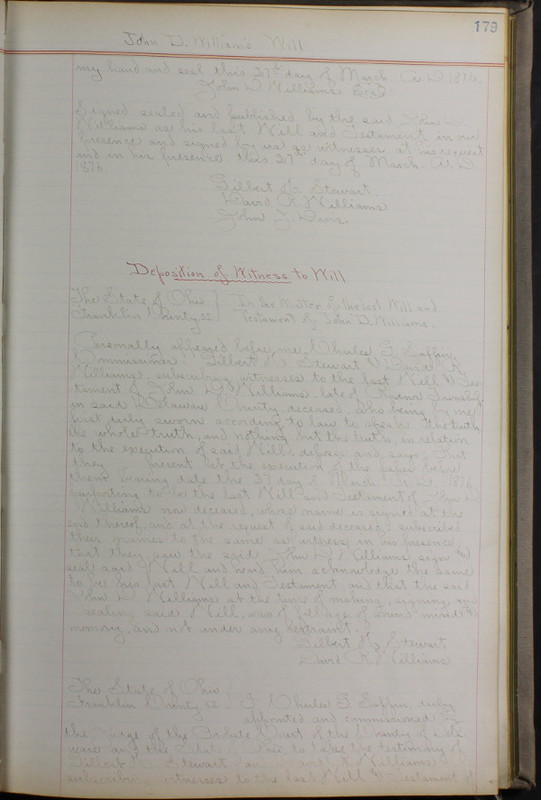 179
John D. William's Will
my hand and seal this 27th day of March A.D. 1876.
John D. Williams Seal
Signed sealed and published by the said John D.
Williams as his last Will and Testament in our
presence and signed by us as witnesses at his request
and in his presence this 27th day of March A.D.
1876
Gilbert H. Stewart
David R. Williams
John J. Davis.
Deposition of Witness to Will
The State of Ohio } In the Matter of the last Will and
Franklin County, ss } Testament of John D. Williams.
Personally appeared before me, Charles G. Saffin,
Commissioner Gilbert H. Stewart & David R.
Williams, subscribing witnesses to the last Will & Tes-
tament of John D. Williams late of Township
in said Delaware County, deceased, who being by me
first duly sworn according to law to speak the truth,
the whole truth, and nothing but the truth, in relation
to the execution of said Will, depose and says: That
they present at the execution of the paper before
them bearing date the 27 day of March A.D. 1876
purporting to be the last Will and Testament of John D.
Williams now deceased, whose name is signed at the
end thereof, and at the request of said deceased, subscribed
their names to the same as witness in his presence,
that they saw the said John D. Williams sign &
seal said Will and heard him acknowledge the same
to be his last Will and Testament and that the said
John D. Williams at the time of making, signing, and
sealing said Will, was of full age, of sound mind &
memory, and not under any restraint.
Gilbert H. Stewart
David R. Williams
The State of Ohio }
Franklin County ss } I, Charles G. Saffin, duly
appointed and commissioned by
the Judge of the Probate Court of the County of Dela-
ware and the State to take the testimony of
Gilbert H. Stewart and Williams
subscribing witnesses to the last Will & Testament of